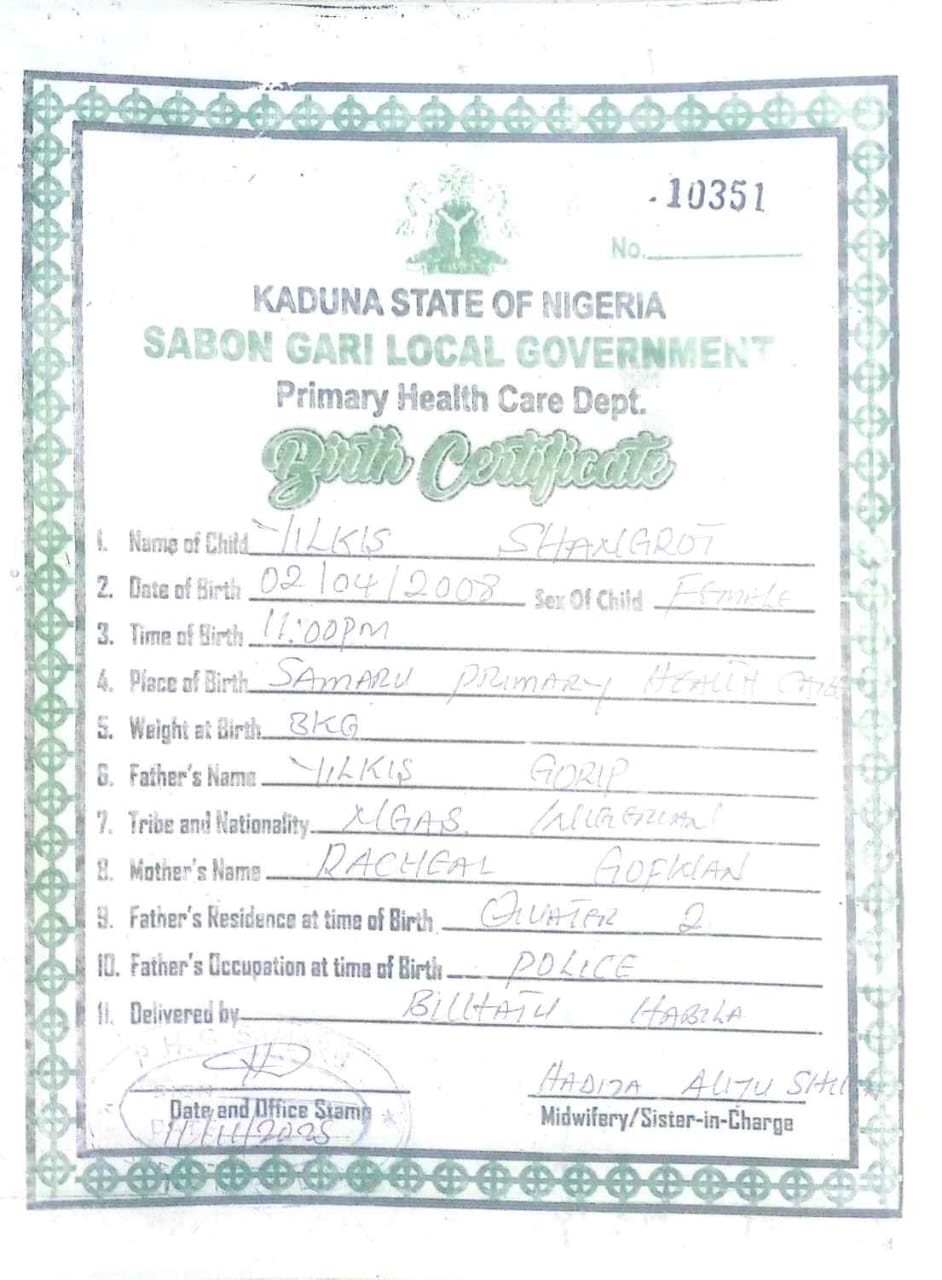 .10351
No.
KADUNA STATE OF NIGERIA
SABON GARI LOCAL GOVERNMENT
Primary Health Care Dept.
Birth Certificate
1. Name of Child YILKIS SHANGROT
2. Date of Birth 02/04/2008 Sex Of Child FEMALE
3. Time of Birth 11:00PM
4. Place of Birth SAMARU PRIMARY HEALTH CARE
5. Weight at Birth 3KG
6. Father's Name YILKIS GORIP
7. Tribe and Nationality NGAS /NIGERIAN
8. Mother's Name RACHEAL GOFWAN
9. Father's Residence at time of Birth QUATER 2
10. Father's Occupation at time of Birth POLICE
11. Delivered by BILHATU HABILA
P.H.C
HADIZA ALIYU
Date and Office Stamp Midwifery/Sister-in-Charge
11/11/2025